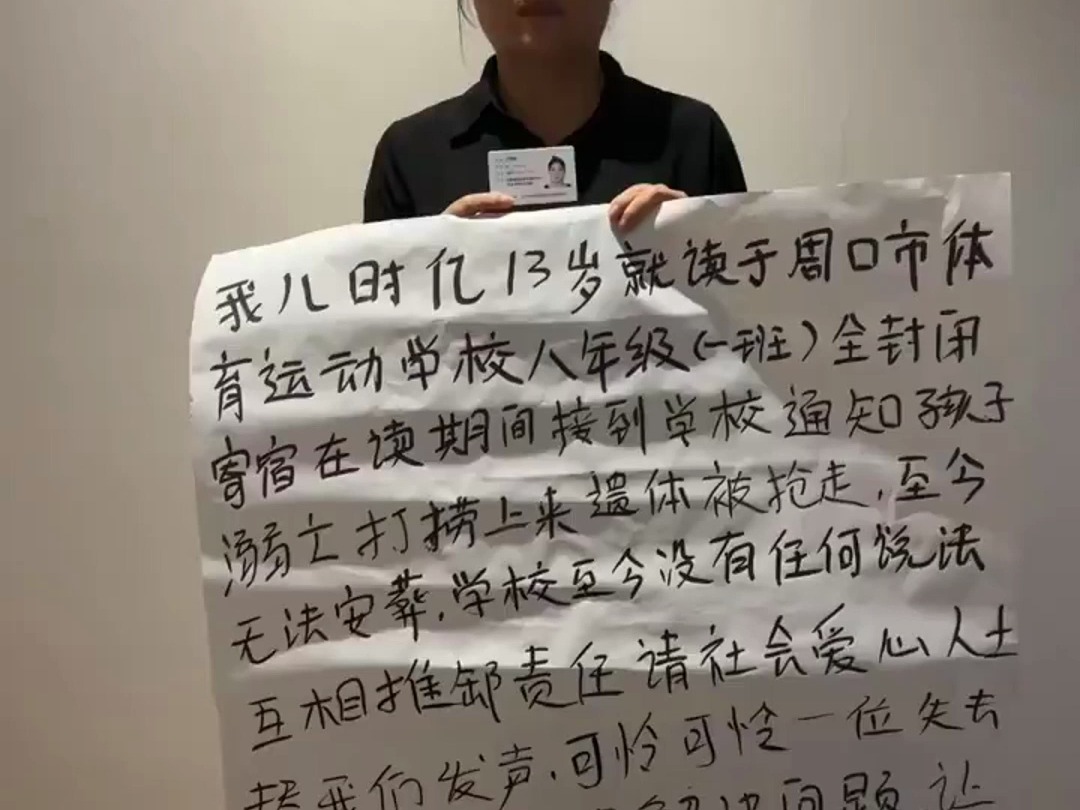 我儿时亿13岁就读于周口市体
育运动学校八年级(一班)全封闭
寄宿在读期间接到学校通知孩子
溺亡打捞上来遗体被抢走,至今
无法安葬,学校至今没有任何说法
互相推卸责任请社会爱心人士
替我们发声,可怜可怜一位失去
解决问题让